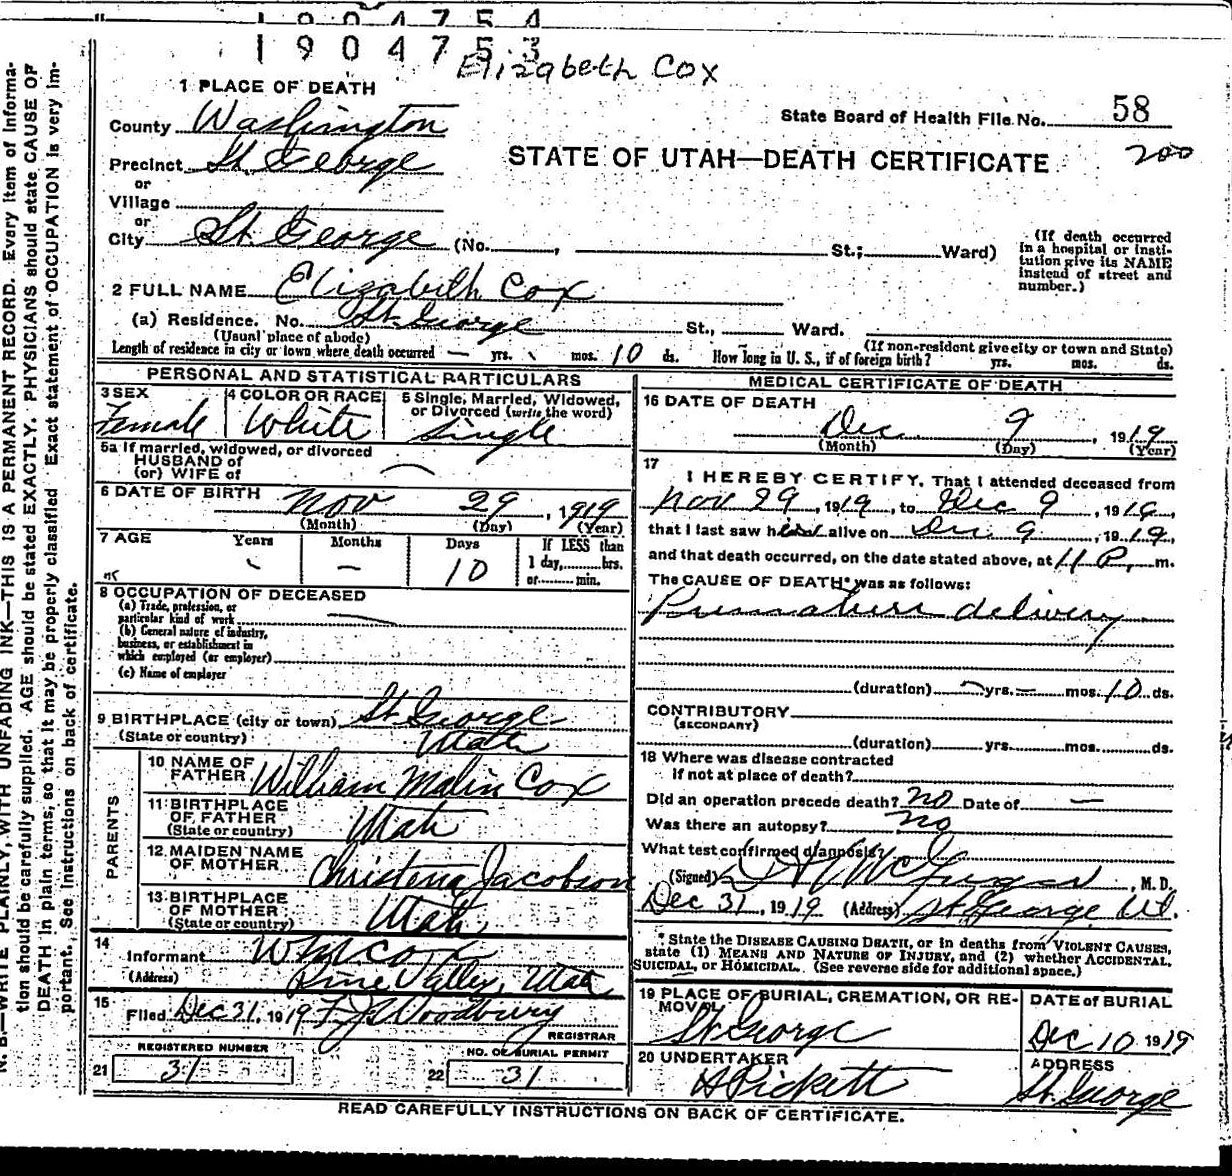 1904754
1904753
Elizabeth Cox
1 PLACE OF DEATH
County Washington
State Board of Health File No. 58
Precinct St. George
STATE OF UTAH—DEATH CERTIFICATE
200
or
Village
or
City St. George (No. , St.; Ward)
(If death occurred in a hospital or insti-
tution give its NAME
instead of street and
number.)
2 FULL NAME Elizabeth Cox
(a) Residence. No. St. George St., Ward.
(Usual place of abode)
(If non-resident give city or town and State)
Length of residence in city or town where death occurred — yrs. mos. 10 ds. How long in U. S., if of foreign birth? yrs. mos. ds.
PERSONAL AND STATISTICAL PARTICULARS
3 SEX
Female
4 COLOR OR RACE
White
5 Single, Married, Widowed,
or Divorced (write the word)
Single
5a If married, widowed, or divorced
HUSBAND of
(or) WIFE of —
6 DATE OF BIRTH Nov 29, 1919
(Month) (Day) (Year)
7 AGE Years Months Days If LESS than
— 10 1 day, hrs.
or min.
8 OCCUPATION OF DECEASED
(a) Trade, profession, or
particular kind of work —
(b) General nature of industry,
business, or establishment in
which employed (or employer)
(c) Name of employer
9 BIRTHPLACE (city or town) St. George
(State or country) Utah
PARENTS
10 NAME OF
FATHER William Malin Cox
11 BIRTHPLACE
OF FATHER
(State or country) Utah
12 MAIDEN NAME
OF MOTHER Christena Jacobson
13 BIRTHPLACE
OF MOTHER
(State or country) Utah
14
Informant Wm Cox
(Address) Pine Valley, Utah
15
Filed Dec 31, 1919 F. J. Woodbury
REGISTRAR
REGISTERED NUMBER
21 31
NO. OF BURIAL PERMIT
22 31
MEDICAL CERTIFICATE OF DEATH
16 DATE OF DEATH
Dec 9, 1919
(Month) (Day) (Year)
17
I HEREBY CERTIFY, That I attended deceased from
Nov 29, 1919, to Dec 9, 1919
that I last saw h alive on Dec 9, 1919,
and that death occurred, on the date stated above, at 11 P. m.
The CAUSE OF DEATH* was as follows:
Premature delivery
(duration) — yrs. — mos. 10 ds.
CONTRIBUTORY
(SECONDARY)
(duration) yrs. mos. ds.
18 Where was disease contracted
if not at place of death?
Did an operation precede death? no Date of —
Was there an autopsy? no
What test confirmed diagnosis?
(Signed) McGregor, M. D.
Dec 31, 1919 (Address) St George Ut.
* State the DISEASE CAUSING DEATH, or in deaths from VIOLENT CAUSES,
state (1) MEANS AND NATURE OF INJURY, and (2) whether ACCIDENTAL,
SUICIDAL, or HOMICIDAL. (See reverse side for additional space.)
19 PLACE OF BURIAL, CREMATION, OR RE-
MOVAL
St George
DATE of BURIAL
Dec 10 1919
20 UNDERTAKER
A Pickett
ADDRESS
St. George
READ CAREFULLY INSTRUCTIONS ON BACK OF CERTIFICATE.
N. B.—WRITE PLAINLY, WITH UNFADING INK—THIS IS A PERMANENT RECORD. Every item of informa-
tion should be carefully supplied. AGE should be stated EXACTLY. PHYSICIANS should state CAUSE OF
DEATH in plain terms, so that it may be properly classified. Exact statement of OCCUPATION is very im-
portant. See instructions on back of certificate.